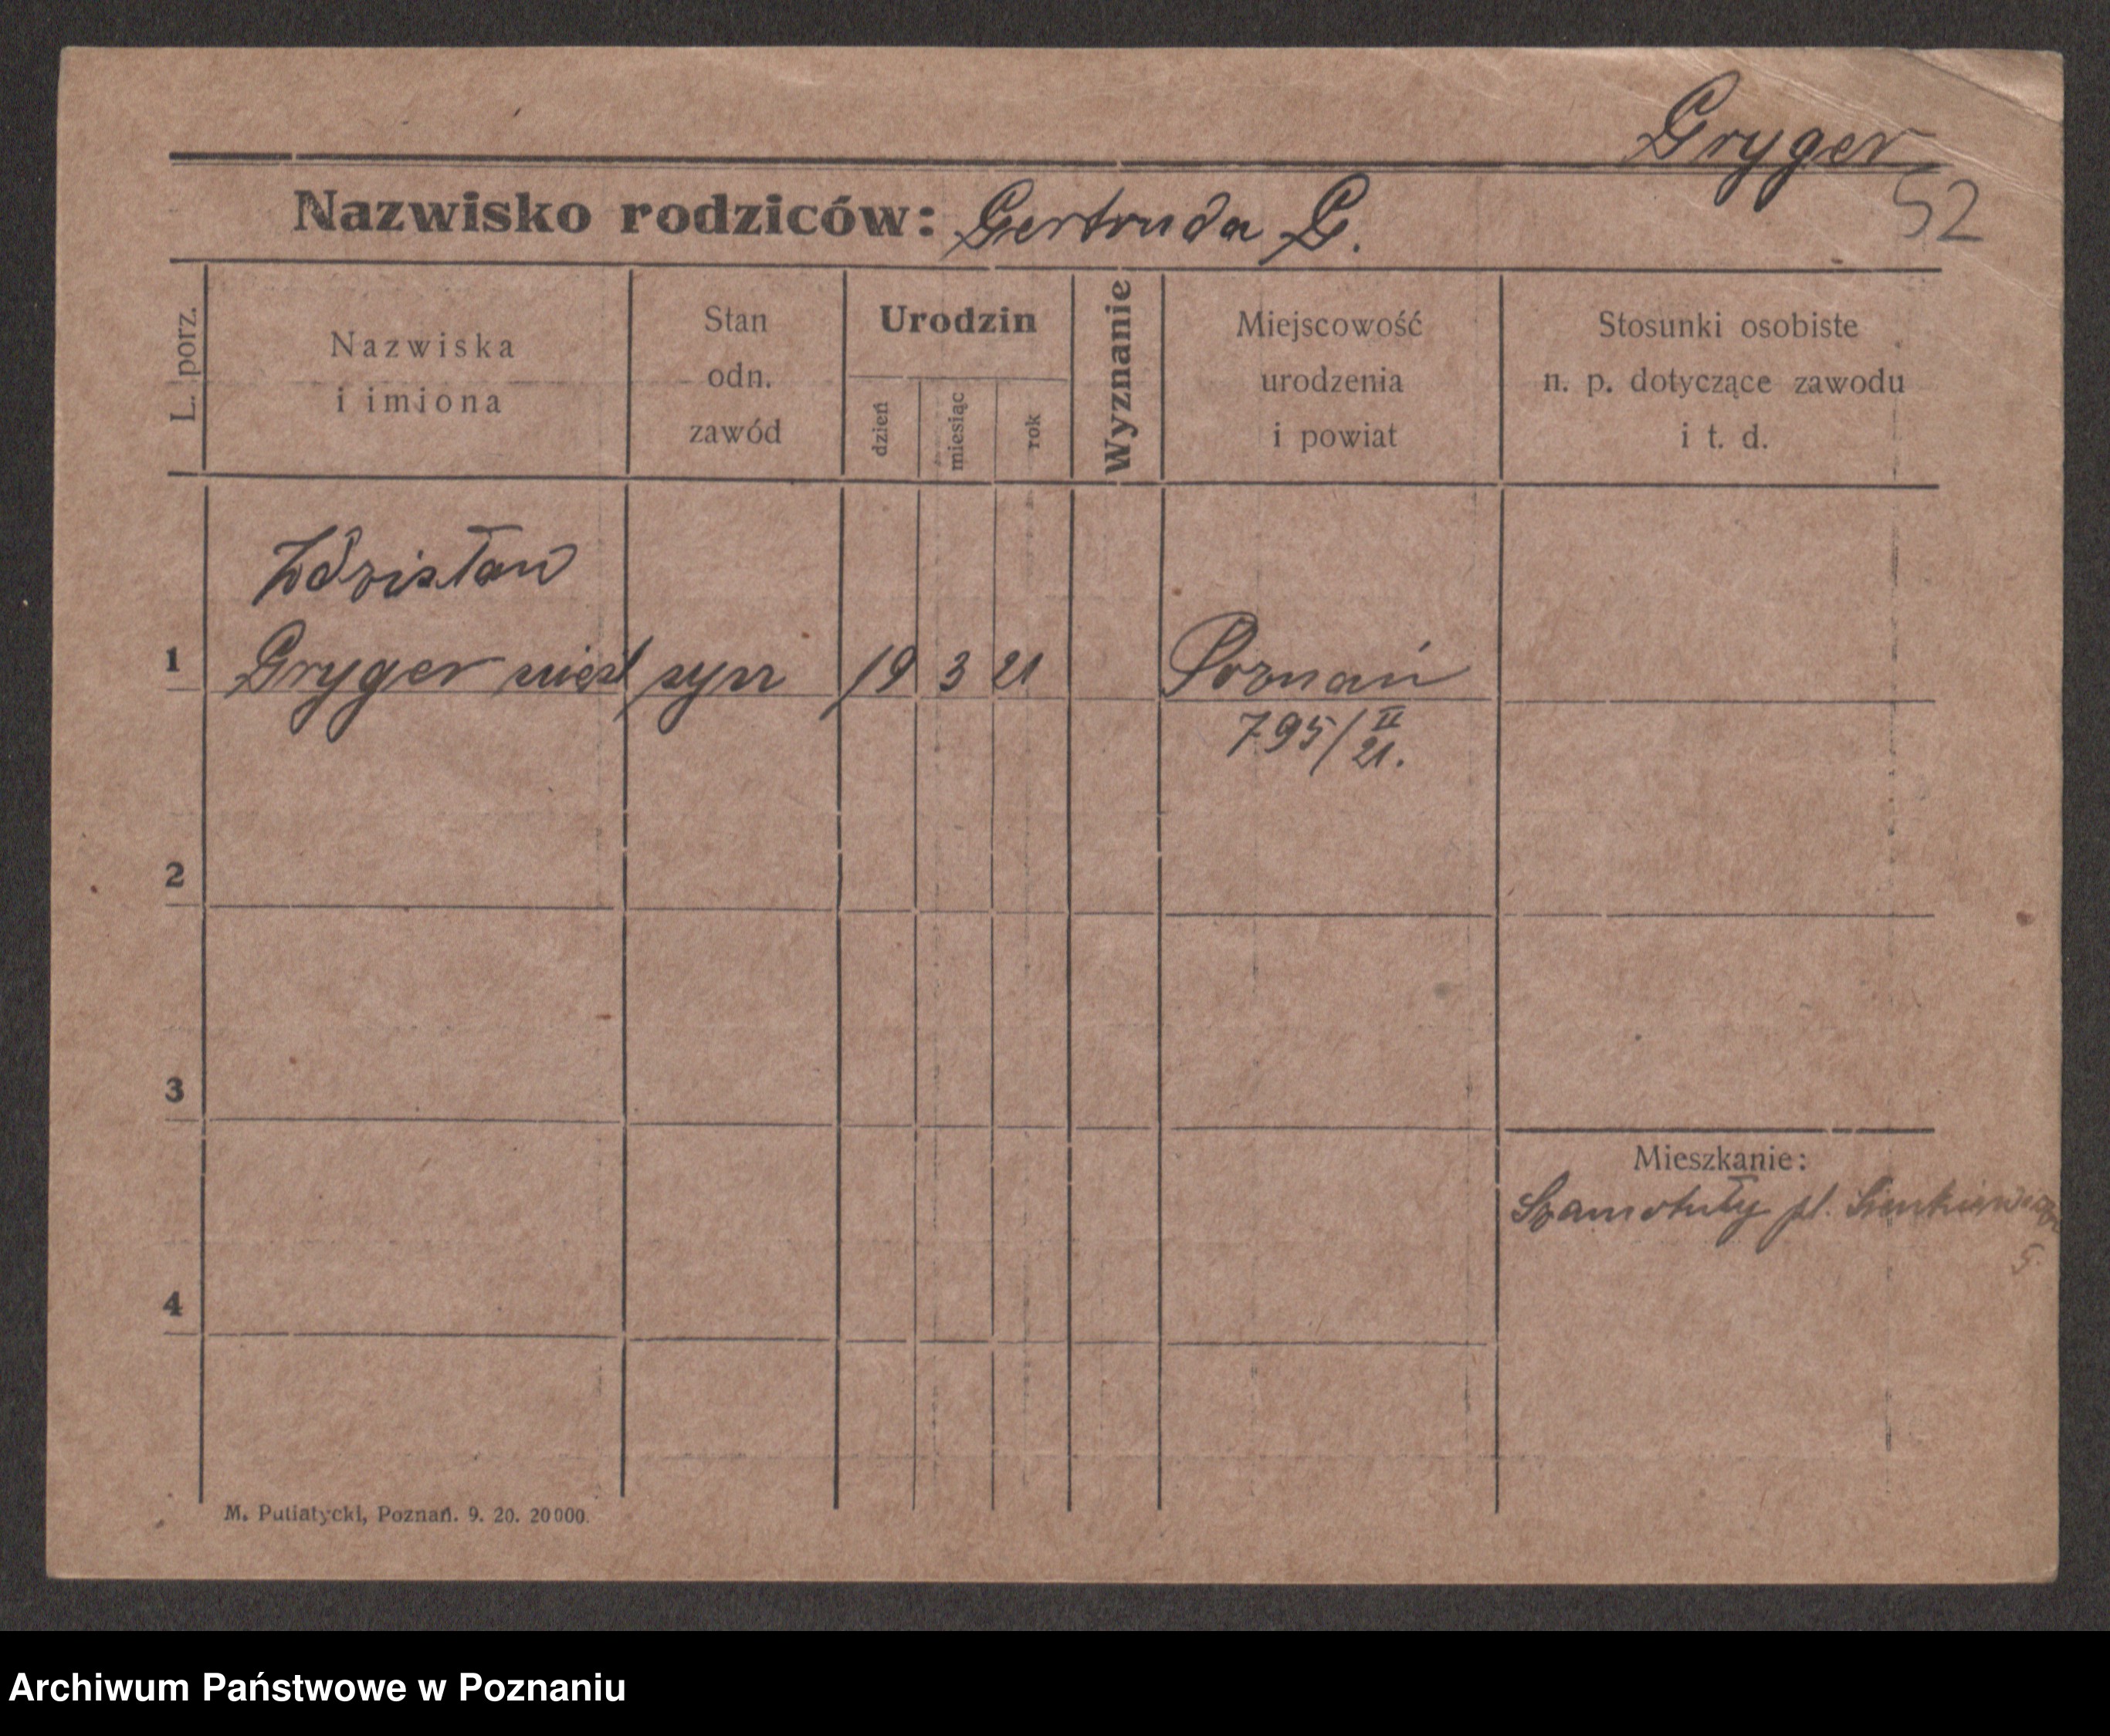 Gryger
52
Nazwisko rodziców: Gertruda G.
L. porz.
Nazwiska
i imiona
Stan
odn.
zawód
Urodzin
dzień
miesiąc
rok
Wyznanie
Miejscowość
urodzenia
i powiat
Stosunki osobiste
n. p. dotyczące zawodu
i t. d.
Zdzisław
1 Gryger syn 19 3 21 Poznań
795/II
21.
2
3
Mieszkanie:
Szamotuły pl. Sienkiewicza
5.
4
M. Putiatycki, Poznań. 9. 20. 20000.
Archiwum Państwowe w Poznaniu